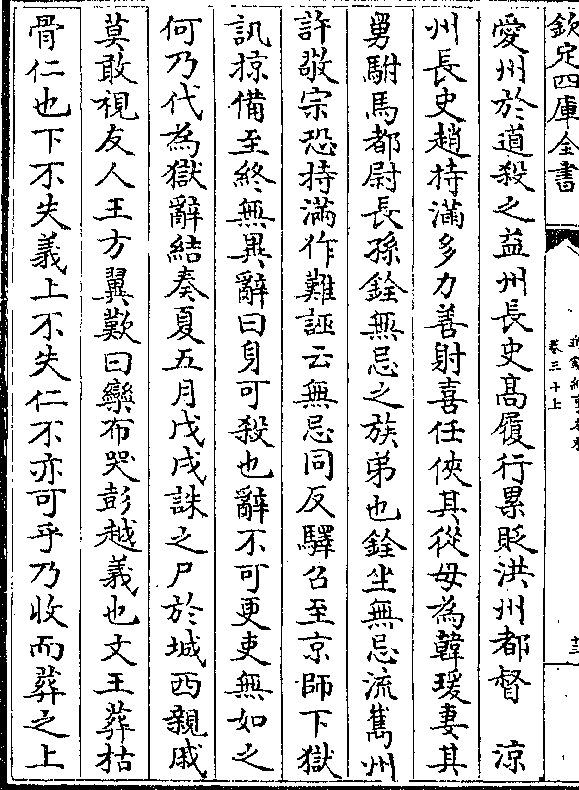 欽定四庫全書
卷三十上
愛州於道殺之益州長史髙履行累貶洪州都督　涼
州長史趙持滿多力善射喜任俠其從母為韓瑗妻其
舅駙馬都尉長孫銓無忌之族弟也銓坐無忌流巂州
許敬宗恐持滿作難誣云無忌同反驛召至京師下獄
訊掠備至終無異辭曰身可殺也辭不可更吏無如之
何乃代為獄辭結奏夏五月戊戌誅之尸於城西親戚
莫敢視友人王方翼歎曰欒布哭彭越義也文王葬枯
骨仁也下不失義上不失仁不亦可乎乃收而葬之上